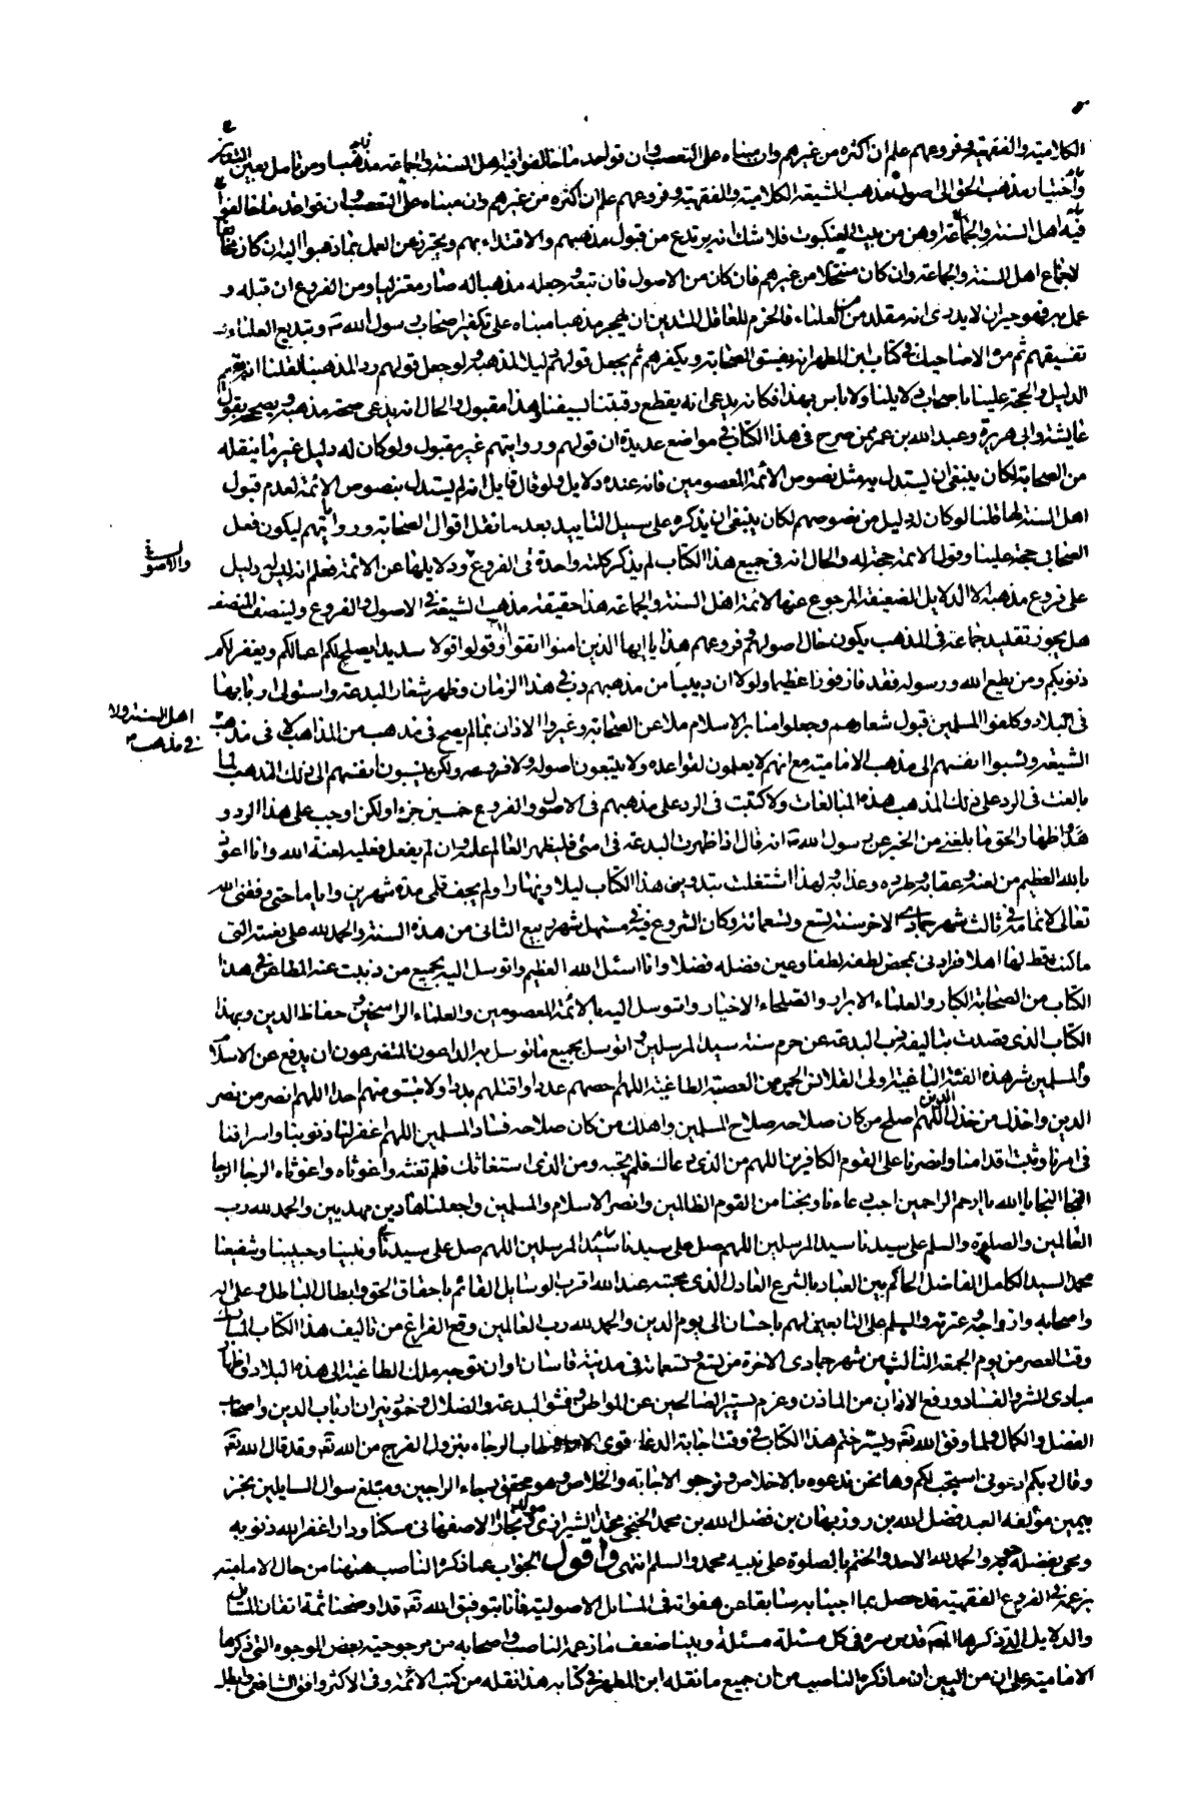 الكلامية والفقهية وفروعهم علم ان اكثره من غيرهم وان مبناه على التعصب وان قواعد ما خالفوا فيه اهل السنة والجماعة مذهبا ومن تامل بعين
واختيار مذهب الحق الى اصول مذهب الشيعة الكلامية والفقهية وفروعهم علم ان اكثره من غيرهم وان مبناه على التعصب وان قواعد ما خالفوا
فيه اهل السنة والجماعة اوهن من بيت العنكبوت فلا شك انه يرتدع من قبول مذهبهم والاقتداء بهم ويحترز عن العمل بما ذهبوا اليه ان كان مخالفا
لاجماع اهل السنة والجماعة وان كان منتحلا من غيرهم فان كان من الاصول فان تبعه وجعله مذهبا له صار معتزليا ومن الفروع ان قبله و
عمل به فهو حيران لا يدرى انه مقلد من من العلماء فالحزم للعاقل المتدين ان يهجر مذهبا مبناه على تكفير اصحاب رسول الله ص وتبديع العلماء و
تفسيقهم ثم من الاضاحيك فى كتاب ابن المطهر انه يفسق الصحابة ويكفرهم ثم يجعل قولهم دليل المذهبه ولو جعل قولهم رد المذهبنا لقلنا انه يقيم
الدليل والحجة علينا باصحاب دلايلنا ولا باس بهذا فكانه يدعى انه يقطع رقبتنا بسيفنا وهذا مقبول والحال انه يدعى صحة مذهبه ويصححه بقول
عايشة وابى هريرة وعبد الله بن عمر ممن صرح فى هذا الكتاب فى مواضع عديدة ان قولهم وروايتهم غير مقبول ولو كان له دليل غير ما ينقله
من الصحابة لكان ينبغى ان يستدل به مثل نصوص الائمة المعصومين فانه عنده دلايل ولو قال قايل انه لم يستدل بنصوص الائمة لعدم قبول
اهل السنة لها قلنا لو كان له دليل من نصوصهم لكان ينبغى ان يذكره على سبيل التاييد بعد ما نقل اقوال الصحابة ورواياتهم ليكون فعل
الصحابى حجة علينا وقول الائمة حجة له والحال انه فى جميع هذا الكتاب لم يذكر كلمة واحدة فى الفروع ودلايلها عن الائمة فعلم انه ليس له دليل
والاصول
على فروع مذهبه الا الدلايل الضعيفة المرجوع عنها لائمة اهل السنة والجماعة هذا حقيقة مذهب الشيعة فى الاصول والفروع ولينصف المنصف
هل يجوز تقليد جماعة فى المذهب يكون حال اصولهم وفروعهم هذا يا ايها الذين امنوا اتقوا الله وقولوا قولا سديدا يصلح لكم اعمالكم ويغفر لكم
ذنوبكم ومن يطع الله ورسوله فقد فاز فوزا عظيما ولولا ان دبيبا من مذهبهم دب فى هذا الزمان وظهر شعار البدعة واستولى اربابها
فى البلاد وكلفوا المسلمين قبول شعارهم وجعلوا منابر الاسلام ملاعن الصحابة وغيروا الاذان بما لم يصح فى مذهب من المذاهب لا فى مذهب
اهل السنة ولا
فى مذهب
الشيعة ونسبوا انفسهم الى مذهب الامامية مع انهم لا يعلمون قواعده ولا يتبعون اصوله ولا فروعه ولكن ينسبون انفسهم الى ذلك المذهب لما
بالغت فى الرد على ذلك المذهب هذه المبالغات ولا كتبت فى الرد على مذهبهم فى الاصول والفروع خمسين جزءا ولكن اوجب على هذا الرد و
هذا اظهار الحق ما بلغنى من الخبر عن رسول الله ص انه قال اذا ظهرت البدعة فى امتى فليظهر العالم علمه وان لم يفعل فعليه لعنة الله وانا اعوذ
بالله العظيم من لعنه وعقابه وطرده وعذابه ولهذا اشتغلت بتدوين هذا الكتاب ليلا ونهارا ولم يجف قلمى مدة شهرين واياما حتى وفقنى الله
تعالى لاتمامه فى ثالث شهر جمادى الاخر سنة تسع وتسعمائة وكان الشروع فيه فى مستهل شهر ربيع الثانى من هذه السنة والحمد لله على نعمته التى
ما كنت قط لها اهلا فزادنى بمحض لطفه لطفا وعين فضله فضلا وانا اسئل الله العظيم واتوسل اليه بجميع من ذببت عنه المطاعن فى هذا
الكتاب من الصحابة الكبار والعلماء الابرار والصلحاء الاخيار واتوسل اليه بالائمة المعصومين والعلماء الراسخين وحفاظ الدين وبهذا
الكتاب الذى قصدت بتاليفه ذب البدعة عن حرم سنة سيد المرسلين واتوسل بجميع ما توسل به الداعون المتضرعون ان يدفع عن الاسلام
والمسلمين شر هذه الفئة الباغية اولى القلانس الحمر من العصبة الطاغية اللهم احصهم عددا واقتلهم بددا ولا تبق منهم احدا اللهم انصر من نصر
الدين واخذل من خذل الدين اللهم اصلح من كان صلاحه صلاح المسلمين واهلك من كان صلاحه فساد المسلمين اللهم اغفر لنا ذنوبنا واسرافنا
فى امرنا وثبت اقدامنا وانصرنا على القوم الكافرين اللهم من الذى دعاك فلم تجبه ومن الذى استغاثك فلم تغثه واغوثاه واغوثاه الرجا الرجا
النجا النجا يا الله يا ارحم الراحمين اجب دعاءنا ونجنا من القوم الظالمين وانصر الاسلام والمسلمين واجعلنا هادين مهديين والحمد لله رب
العالمين والصلوة والسلم على سيدنا سيد المرسلين اللهم صل على سيدنا سيد المرسلين اللهم صل على سيدنا ونبينا وحبيبنا وشفيعنا
محمد السيد الكامل الفاضل الحاكم بين العباد بالشرع العادل الذى محبته عند الله اقرب الوسايل القائم باحقاق الحق وابطال الباطل وعلى اله
واصحابه وازواجه وعترته والسلم على التابعين لهم باحسان الى يوم الدين والحمد لله رب العالمين وقع الفراغ من تاليف هذا الكتاب المبارك
وقت العصر من يوم الجمعة الثالث من شهر جمادى الاخرة من تسع وتسعمائة فى مدينة قاسان اوان توجه ملك الطاغية الى هذه البلاد واظهار
مبادى الشر والفساد ورفع الاذان من الماذن وعزم تسيير الصالحين عن المواطن وفشو البدعة والضلال وخمود نيران ارباب الدين واصحاب
الفضل والكمال ولما وفق الله تعه وتيسر ختم هذا الكتاب فى وقت اجابة الدعاء قوى الرجاء بنزول الفرج من الله تعه وقد قال الله تعه
وقال ربكم ادعونى استجب لكم وها نحن ندعوه بالاخلاص ونرجو الاجابة والخلاص وهو محقق رجاء الراجين ومبلغ سوال السايلين نجز
بيمين مؤلفه العبد فضل الله بن روزبهان بن فضل الله بن محمد الخنجى محتدا الشيرازى مولدا ونجارا الاصفهانى مسكنا ودارا غفر الله ذنوبه
ومحى بفضله حوبه والحمد لله الاحد والختم بالصلوة على نبيه محمد والسلم انتهى واقول الجواب عما ذكره الناصب ههنا من حال الامامية
بزعمه فى الفروع الفقهية قد حصل بما اجبنا به سابقا عن هفواته فى المسائل الاصولية فانا بتوفيق الله تعه قد اوضحنا ثمة اتقان المسايل
والدلايل التى ذكرها المص قدس سره فى كل مسئلة مسئلة وبينا ضعف ما زعمه الناصب واصحابه من مرجوحية بعض الوجوه التى ذكرها
الامامية على ان من البين ان ما ذكره الناصب من ان جميع ما نقله ابن المطهر فى كتابه هذا نقله من كتب الائمة وفى الاكثر وافق الشافعى